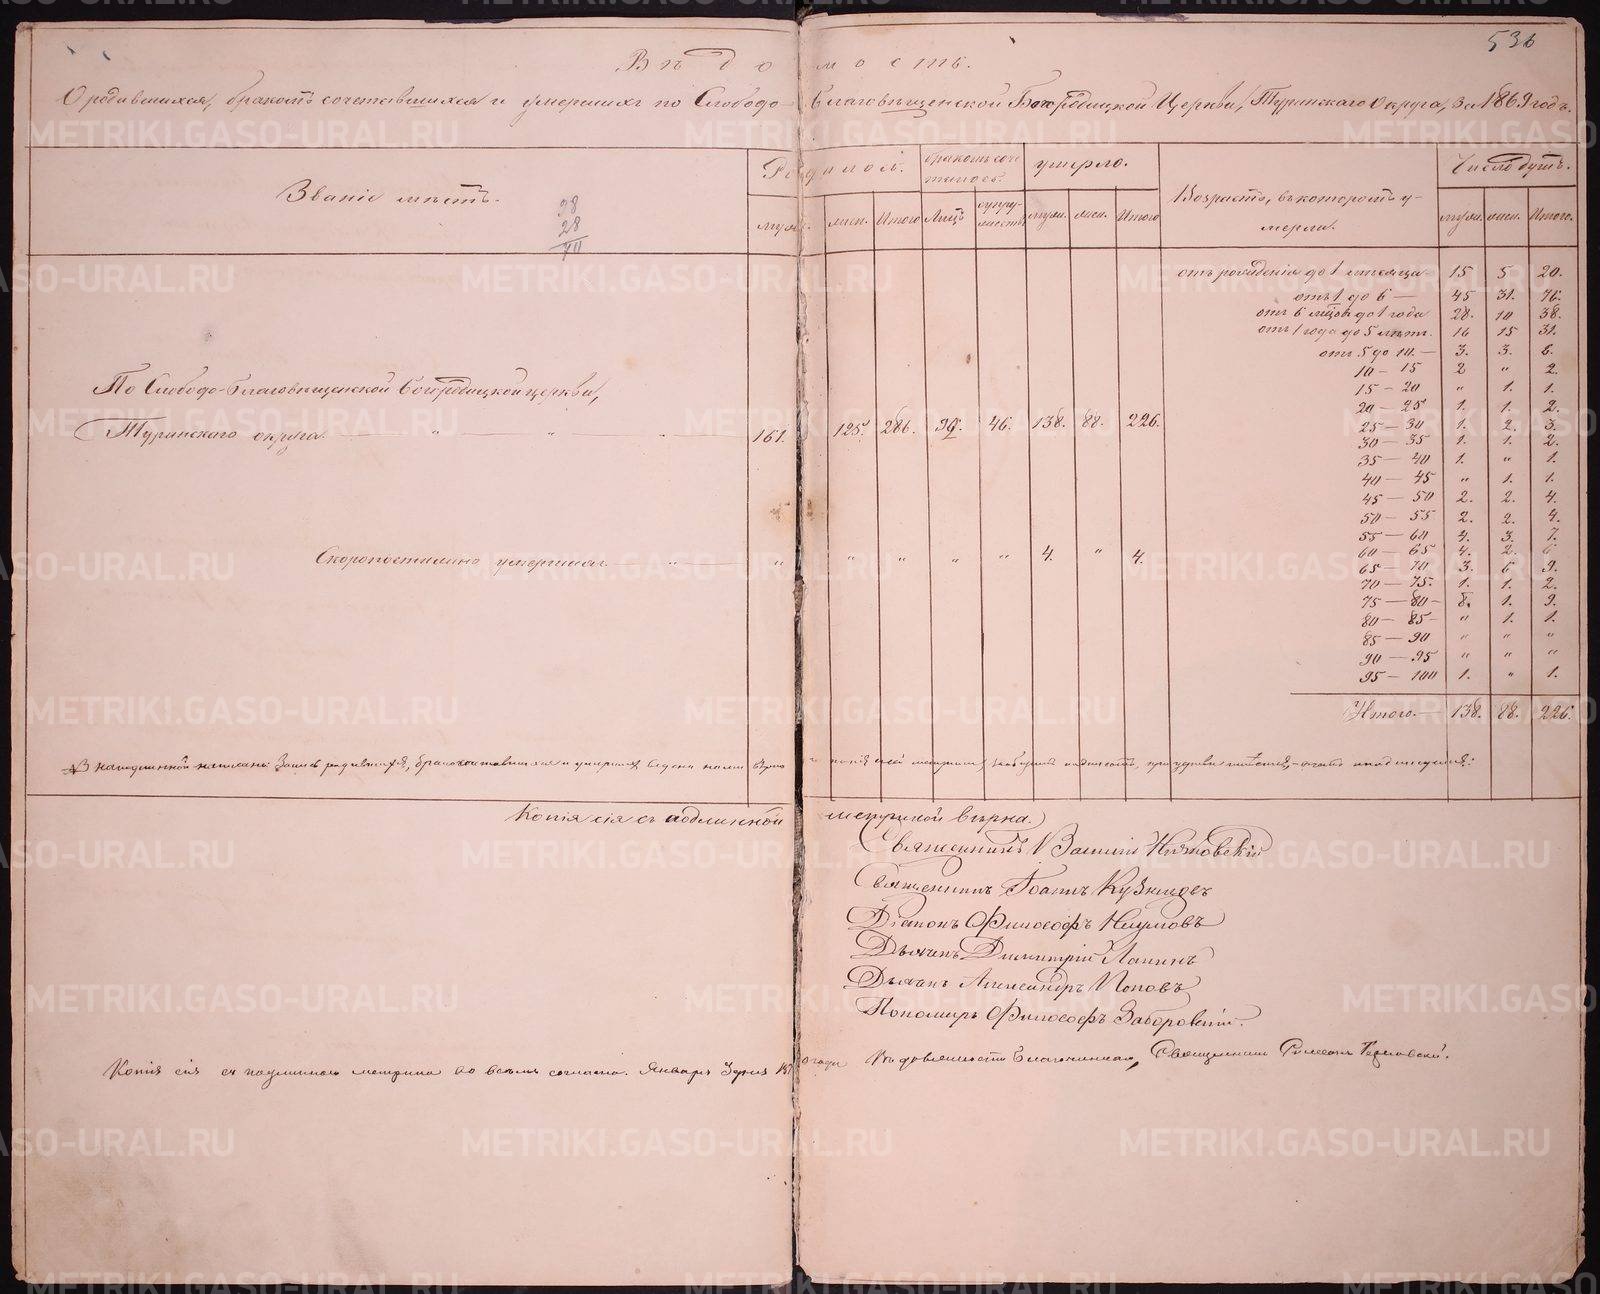 536
Вѣдомость.
О родившихся, бракомъ сочетавшихся и умершихъ по Слободо-Благовѣщенской Богородицкой Церкви, Туринскаго Округа, за 1869 годъ.
Званіе мѣстъ.
28
28
Родилось.
бракомъ соче-
талось.
умерло.
Возрастъ, въ которомъ у-
мерли.
Число душъ.
муж. жен. Итого Лицъ супру-
жествъ муж. жен. Итого
муж. жен. Итого.
отъ рожденія до 1 мѣсяца— 15 5 20.
отъ 1 до 6 — 45 31. 76.
отъ 6 мѣсяц. до 1 года 28. 10 38.
отъ 1 года до 5 лѣтъ. 16 15 31.
отъ 5 до 10.— 3. 3. 6.
10 — 15 2 " 2.
15 — 20 " 1. 1.
20 — 25 1. 1. 2.
25 — 30 1. 2. 3.
30 — 35 1. 1. 2.
35 — 40 1. " 1.
40 — 45 " 1. 1.
45 — 50 2. 2. 4.
50 — 55 2. 2. 4.
55 — 60 4. 3. 7.
60 — 65 4. 2. 6
65 — 70 3. 6 9.
70 — 75. 1. 1. 2.
75 — 80 — 8. 1. 9.
80 — 85 — " 1. 1.
85 — 90 " " "
90 — 95 " " "
95 — 100 1. " 1.
Итого.— 138. 88. 226.
По Слободо-Благовѣщенской Богородицкой церкви,
Туринскаго округа. — " — " — " — 161. 125. 286. 92. 46. 138. 88. 226.
Скоропостижно умершихъ — " — " " " " " 4. " 4.
Копія сія съ подлинной метрикой вѣрна.
Священникъ Василій
Священникъ Іоаннъ Кузнецовъ
Діаконъ Философъ Наумовъ
Дьячекъ Димитрій Лапинъ
Дьячекъ Александръ Поповъ
Пономарь Философъ Заборовскій.
Копія сія съ подлинною метрикою во всемъ согласна. Января Благочинная, Священникъ
METRIKI.GASO-URAL.RU